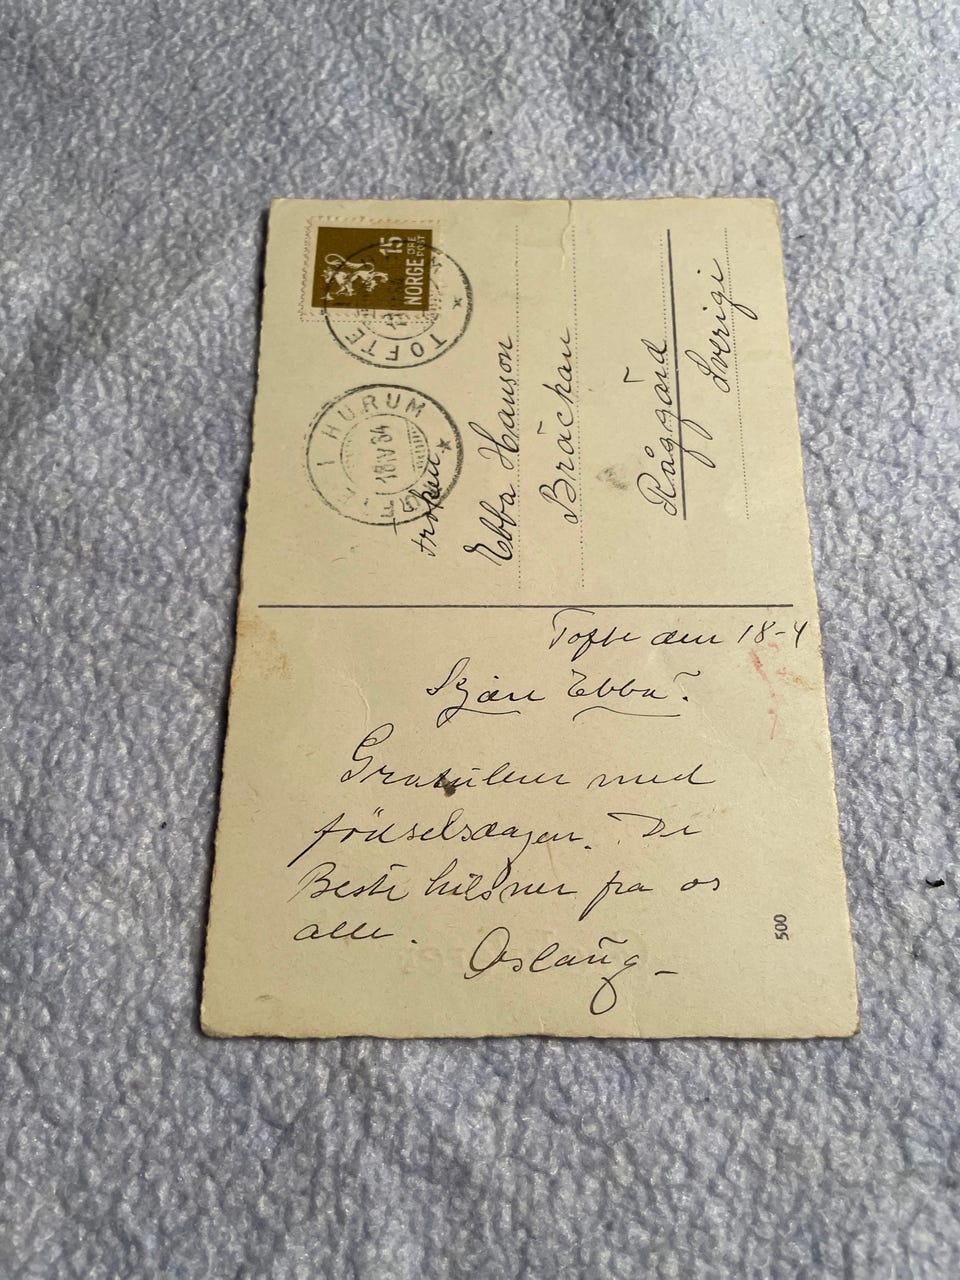 Tofte den 18-4
Kjære Ebba!
Gratulerer med
födselsdagen. De
Beste hilsner fra os
alle.
Aslaug -
NORGE
15
ØRE
POST
TOFTE
TOFTE I HURUM
18 IV 34
Frøken
Ebba Hanson
Bräckan
Råggärd
Sverige
500